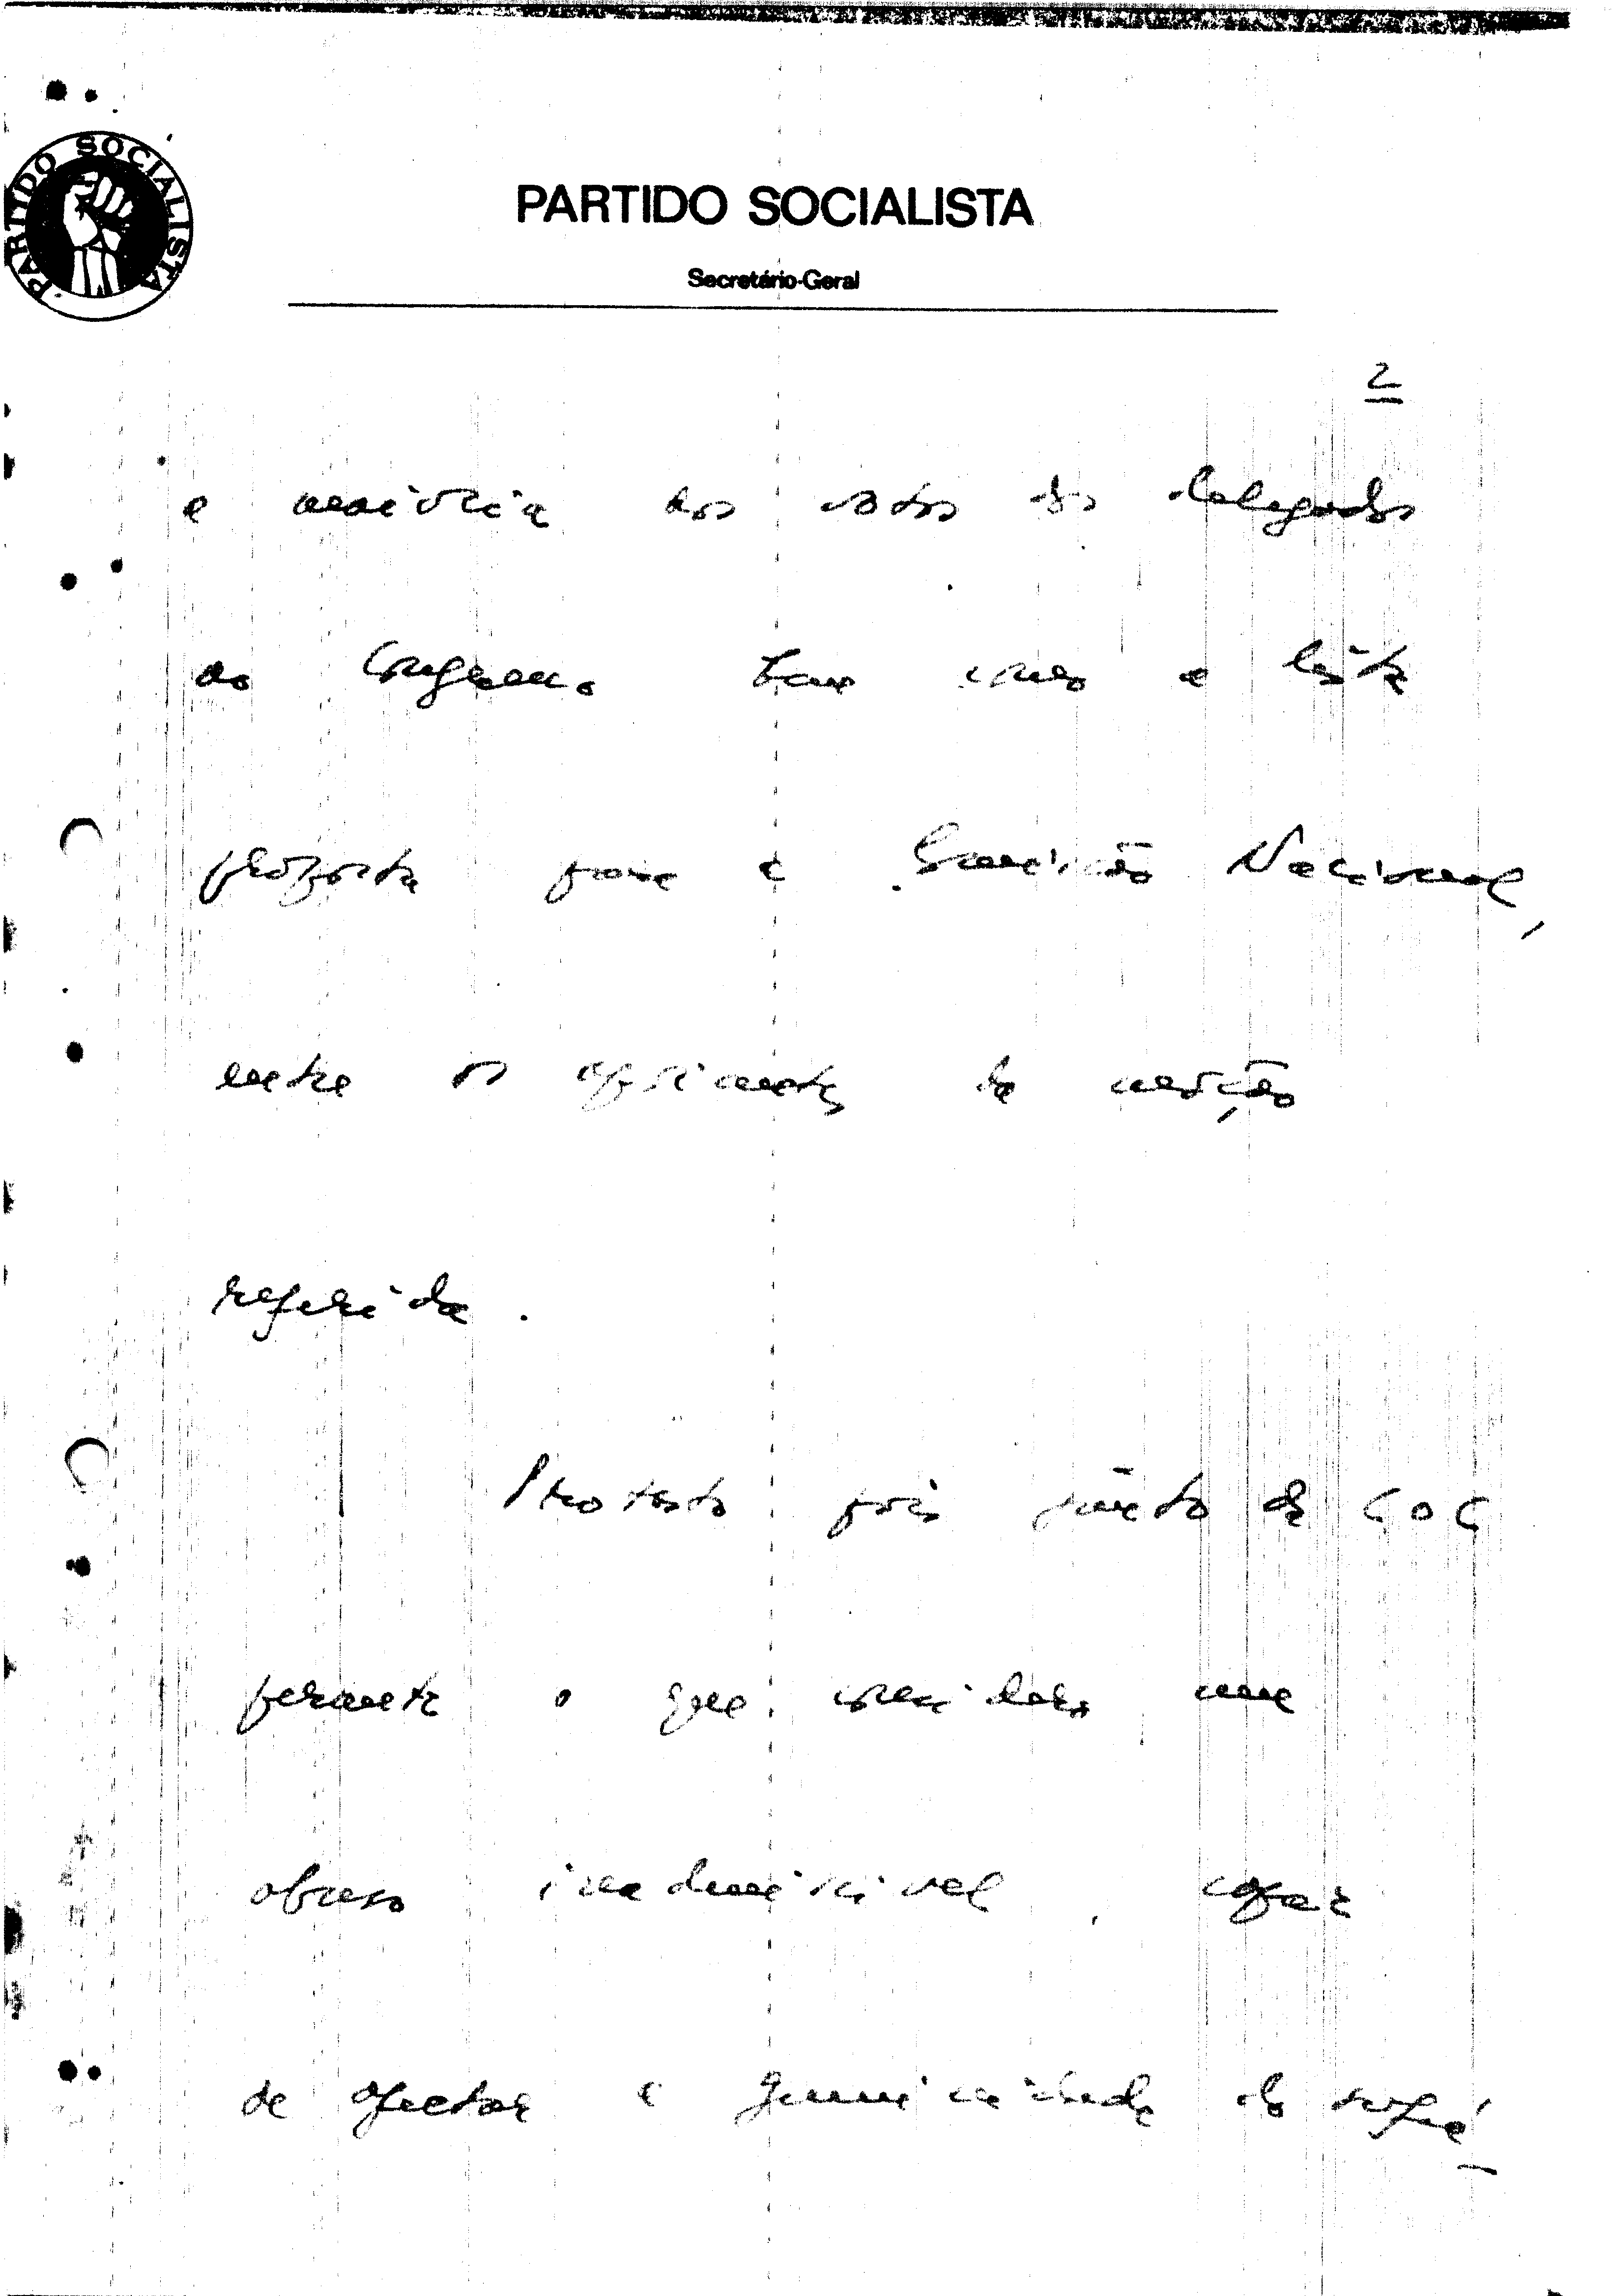 PARTIDO SOCIALISTA
PARTIDO SOCIALISTA
Secretário-Geral
2
a maioria dos votos dos delegados
ao Congresso bem como a lista
proposta para a Comissão Nacional,
entre os apoiantes da moção
referida.
Protesto pois junto da COC
perante o que considero um
abuso inadmissível, capaz
de afectar a genuinidade do sufrá-